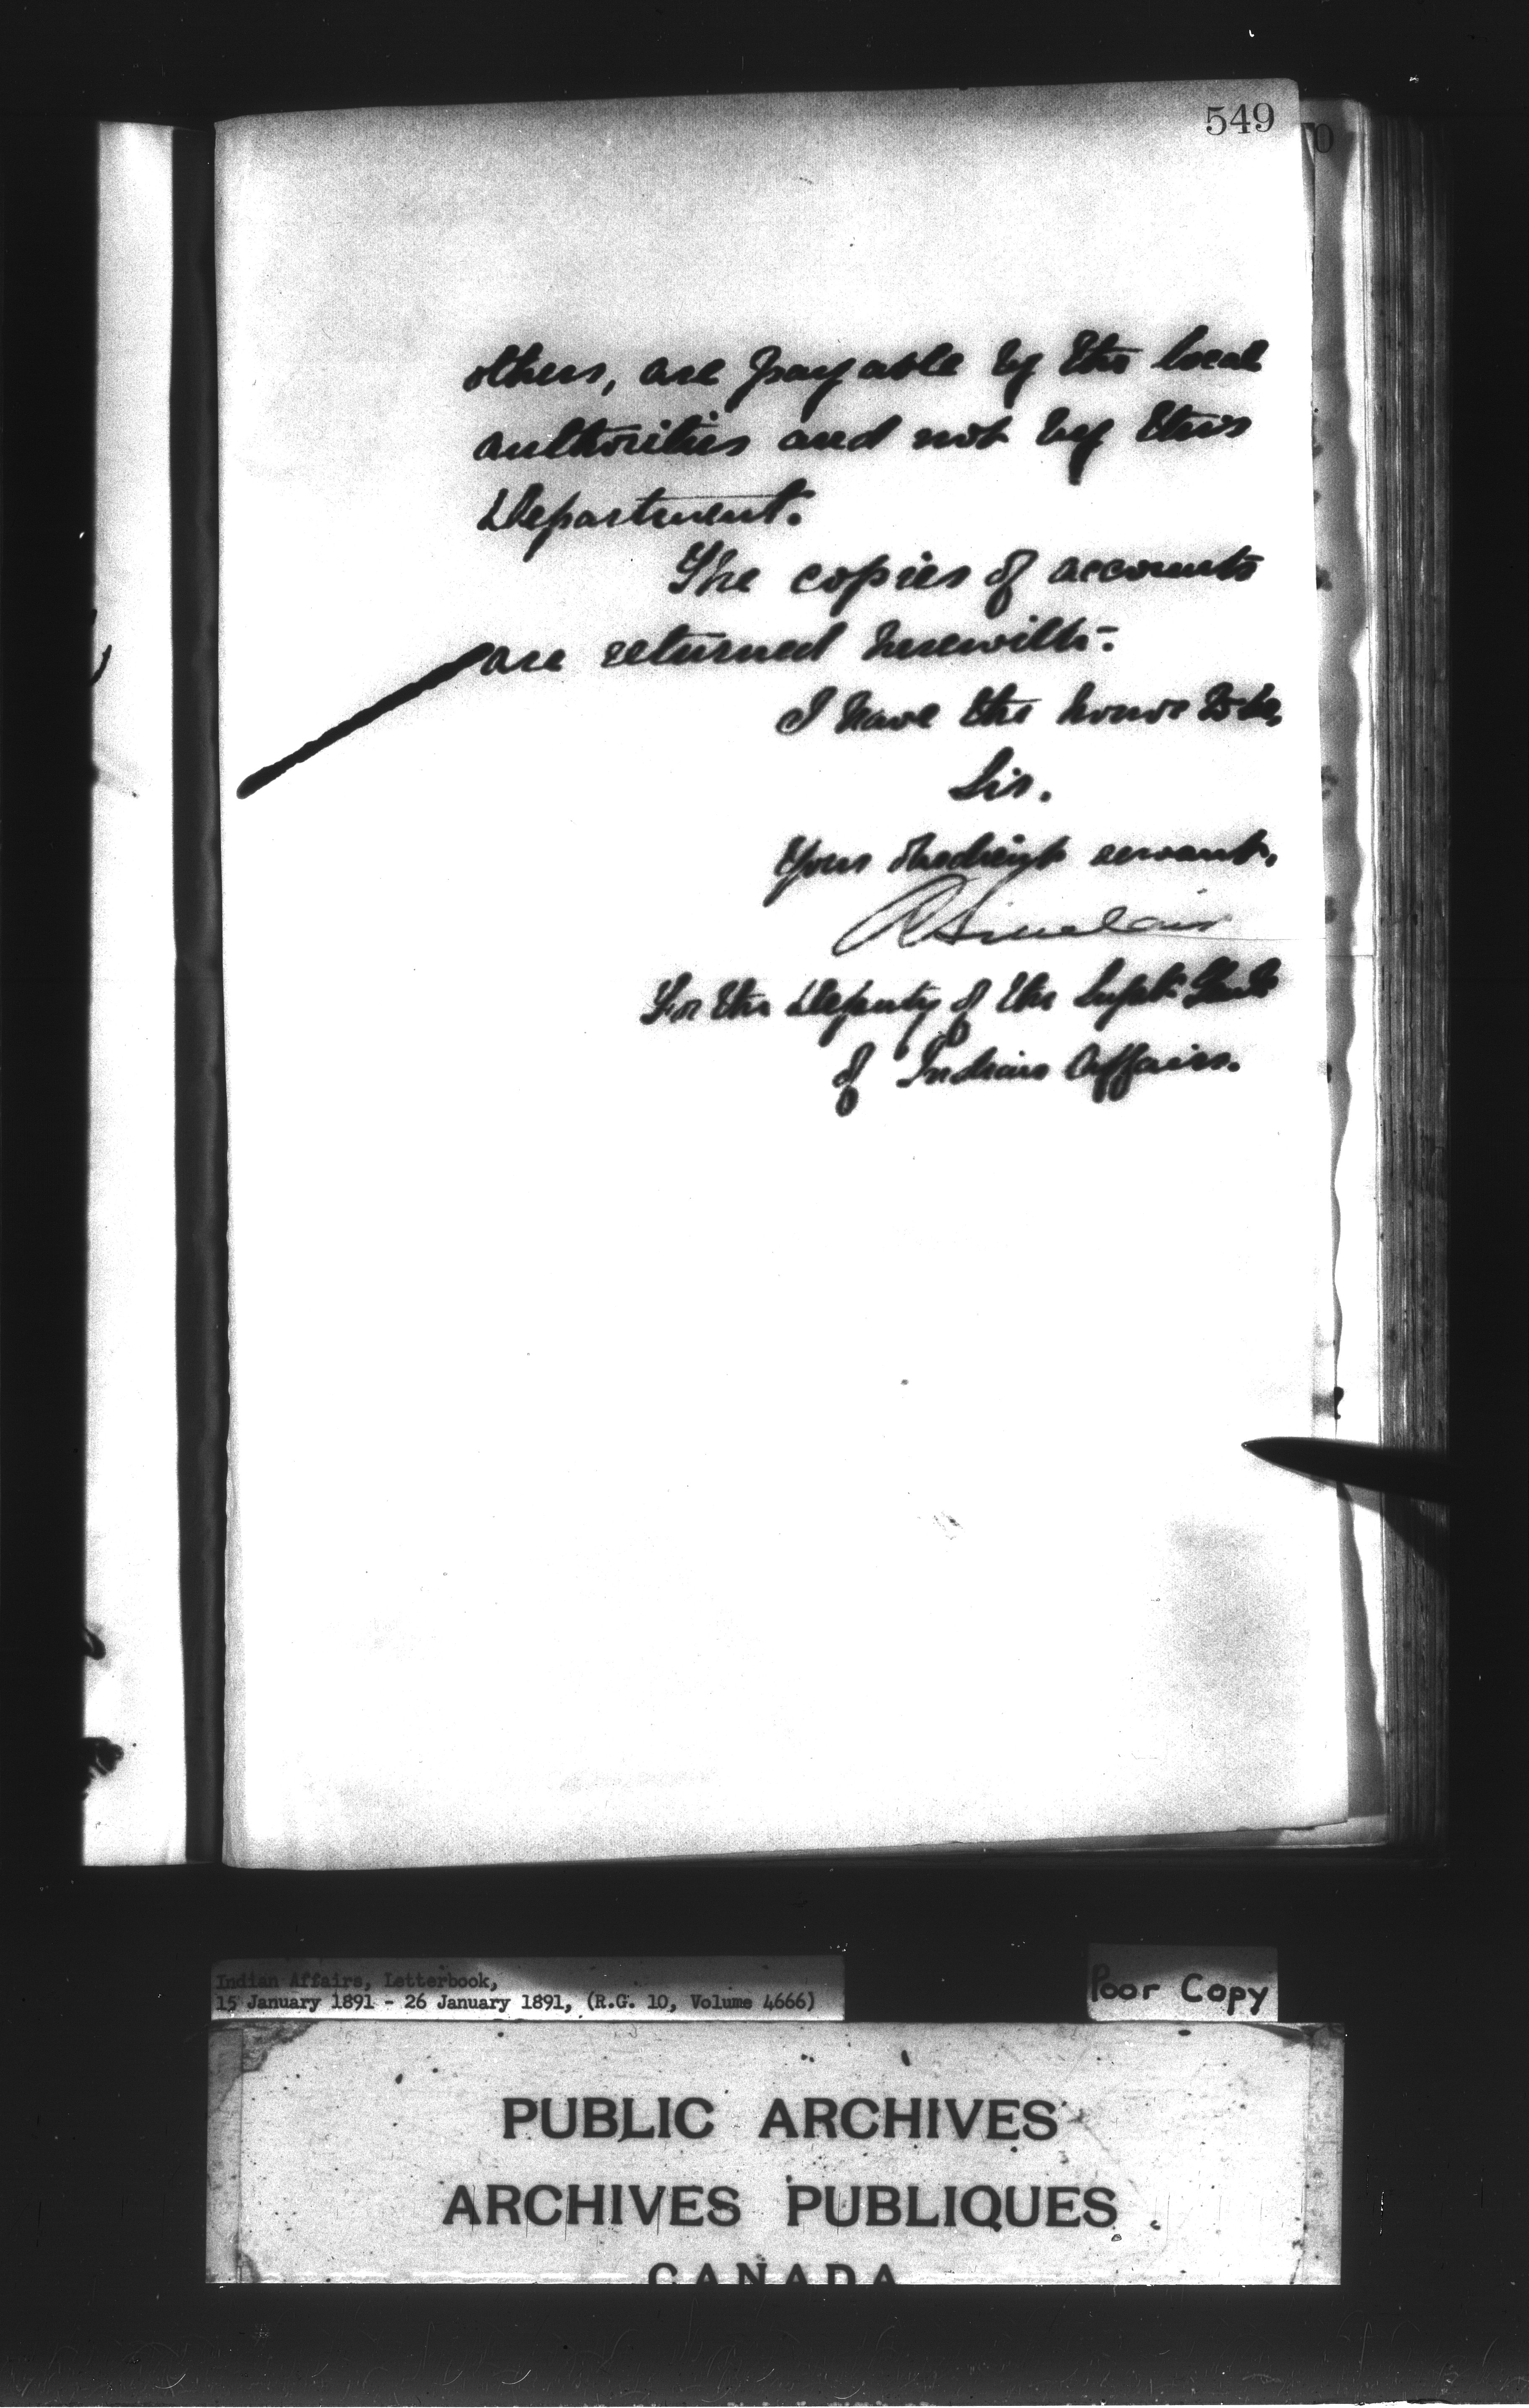 549
others, are payable by the local
authorities and not by this
Department.
The copies of accounts
are returned herewith.
I have the honor to be,
Sir.
Your obedient servant,
R Sinclair
For the Deputy of the Supt. Genl.
of Indian Affairs.
Indian Affairs, Letterbook,
15 January 1891 - 26 January 1891, (R.G. 10, Volume 4666)
Poor Copy
PUBLIC ARCHIVES
ARCHIVES PUBLIQUES
CANADA